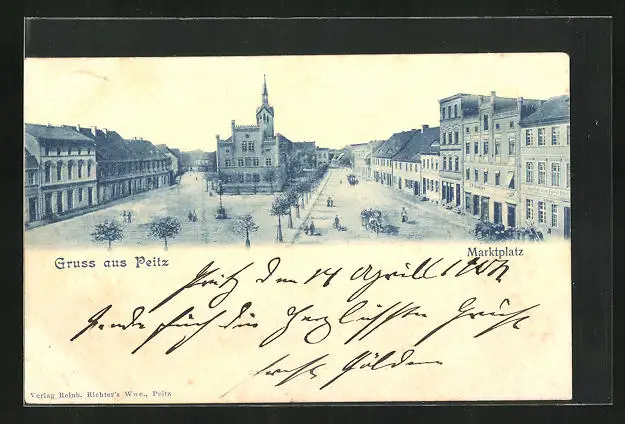 Gruss aus Peitz
Marktplatz
Peitz den 14 April
Sende für die Herzlichsten Grüße
Verlag Reinh. Richter's Wwe., Peitz